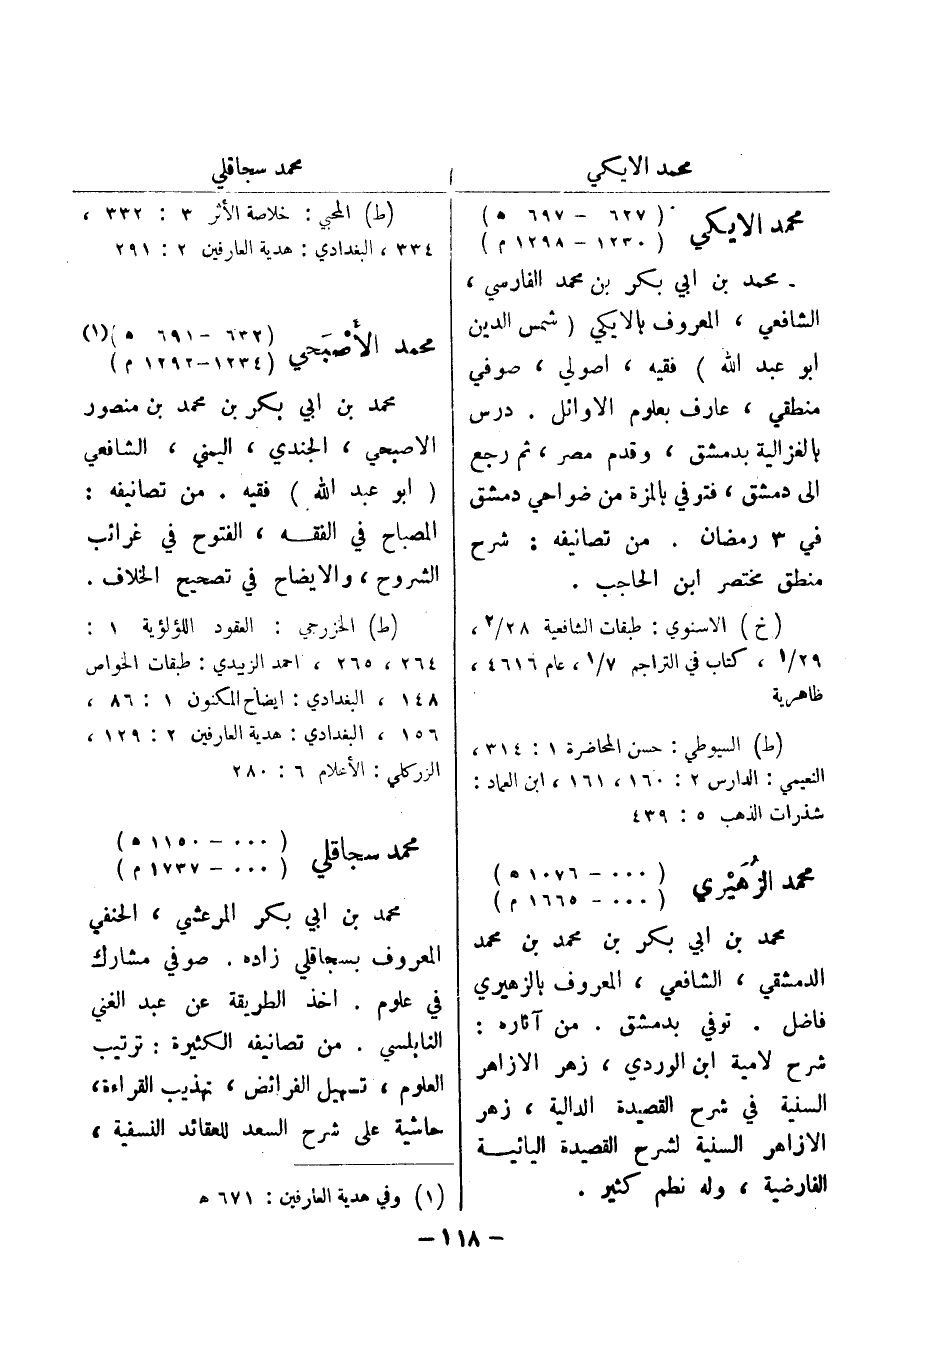 محمد الايكي
أ
محمد سجاقلي
محمد الايكي
( ٦٢٧ – ٦٩٧ ه )
( ١٢٣٠ – ١٢٩٨ م )
محمد بن ابي بكر بن محمد الفارسي ،
الشافعي ، المعروف بالايكي ( شمس الدين
ابو عبد الله ) فقيه ، اصولي ، صوفي
منطقي ، عارف بعلوم الاوائل . درس
بالغزالية بدمشق ، وقدم مصر ، ثم رجع
الى دمشق ، فتوفي بالمزة من ضواحي دمشق
في ٣ رمضان . من تصانيفه : شرح
منطق مختصر ابن الحاجب .
( خ ) الاسنوي : طبقات الشافعية ٢٨/٢ ،
٢٩/١ ، كتاب في التراجم ٧/١ ، عام ٤٦١٦ ،
ظاهرية
(ط) السيوطي : حسن المحاضرة ١ : ٣١٤ ،
النعيمي : الدارس ٢ : ١٦٠ ، ١٦١ ، ابن العماد :
شذرات الذهب ٥ : ٤٣٩
محمد الزُهَيْري
( ٠٠٠ – ١٠٧٦ ه )
( ٠٠٠ – ١٦٦٥ م )
محمد بن ابي بكر بن محمد بن محمد
الدمشقي ، الشافعي ، المعروف بالزهيري
فاضل . توفي بدمشق . من آثاره :
شرح لامية ابن الوردي ، زهر الازاهر
السنية في شرح القصيدة الدالية ، زهر
الازاهر السنية لشرح القصيدة اليائيــة
الفارضية ، وله نظم كثير .
(ط) المحبي : خلاصة الأثر ٣ : ٣٣٢ ،
٣٣٤ ، البغدادي : هدية العارفين ٢ : ٢٩١
محمد الأَصْبَحي
( ٦٣٢ – ٦٩١ ه )(١)
( ١٢٣٤–١٢٩٢ م )
محمد بن ابي بكر بن محمد بن منصور
الاصبحي ، الجندي ، اليمني ، الشافعي
( ابو عبد الله ) فقيه . من تصانيفه :
المصباح في الفقــه ، الفتوح في غرائب
الشروح ، والايضاح في تصحيح الخلاف .
(ط) الخزرجي : العقود اللؤلؤية ١ :
٢٦٤ ، ٢٦٥ ، احمد الزبيدي : طبقات الخواص
١٤٨ ، البغدادي : ايضاح المكنون ١ : ٨٦ ،
١٥٦ ، البغدادي : هدية العارفين ٢ : ١٢٩ ،
الزركلي : الأعلام ٦ : ٢٨٠
محمد سجاقلي
( ٠٠٠ – ١١٥٠ ه )
( ٠٠٠ – ١٧٣٧ م )
محمد بن ابي بكر المرعشي ، الحنفي
المعروف بسجاقلي زاده . صوفي مشارك
في علوم . اخذ الطريقة عن عبد الغني
النابلسي . من تصانيفه الكثيرة : ترتيب
العلوم ، تسهيل الفرائض ، تهذيب القراءة،
حاشية على شرح السعد للعقائد النسفية ،
(١) وفي هدية العارفين : ٦٧١ ه
– ١١٨ –